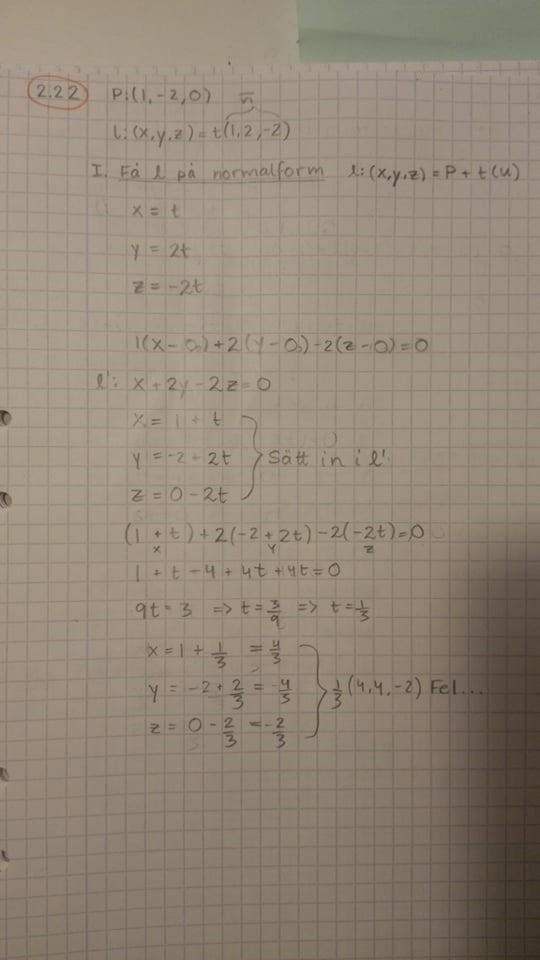 2.22 P:(1,-2,0) n̄
l:(x,y,z)=t(1,2,-2)
I. Få l på normalform l:(x,y,z)=P+t(u)
x = t
y = 2t
z = -2t
1(x-0)+2(y-0)-2(z-0)=0
l': x+2y-2z=0
x = 1 + t
y = -2 + 2t } Sätt in i l'.
z = 0 - 2t
(1 + t) + 2(-2 + 2t) - 2(-2t) = 0
x y z
1 + t - 4 + 4t + 4t = 0
9t = 3 => t = 3/9 => t = 1/3
x = 1 + 1/3 = 4/3
y = -2 + 2/3 = -4/3 } 1/3 (4,4,-2) Fel...
z = 0 - 2/3 = -2/3